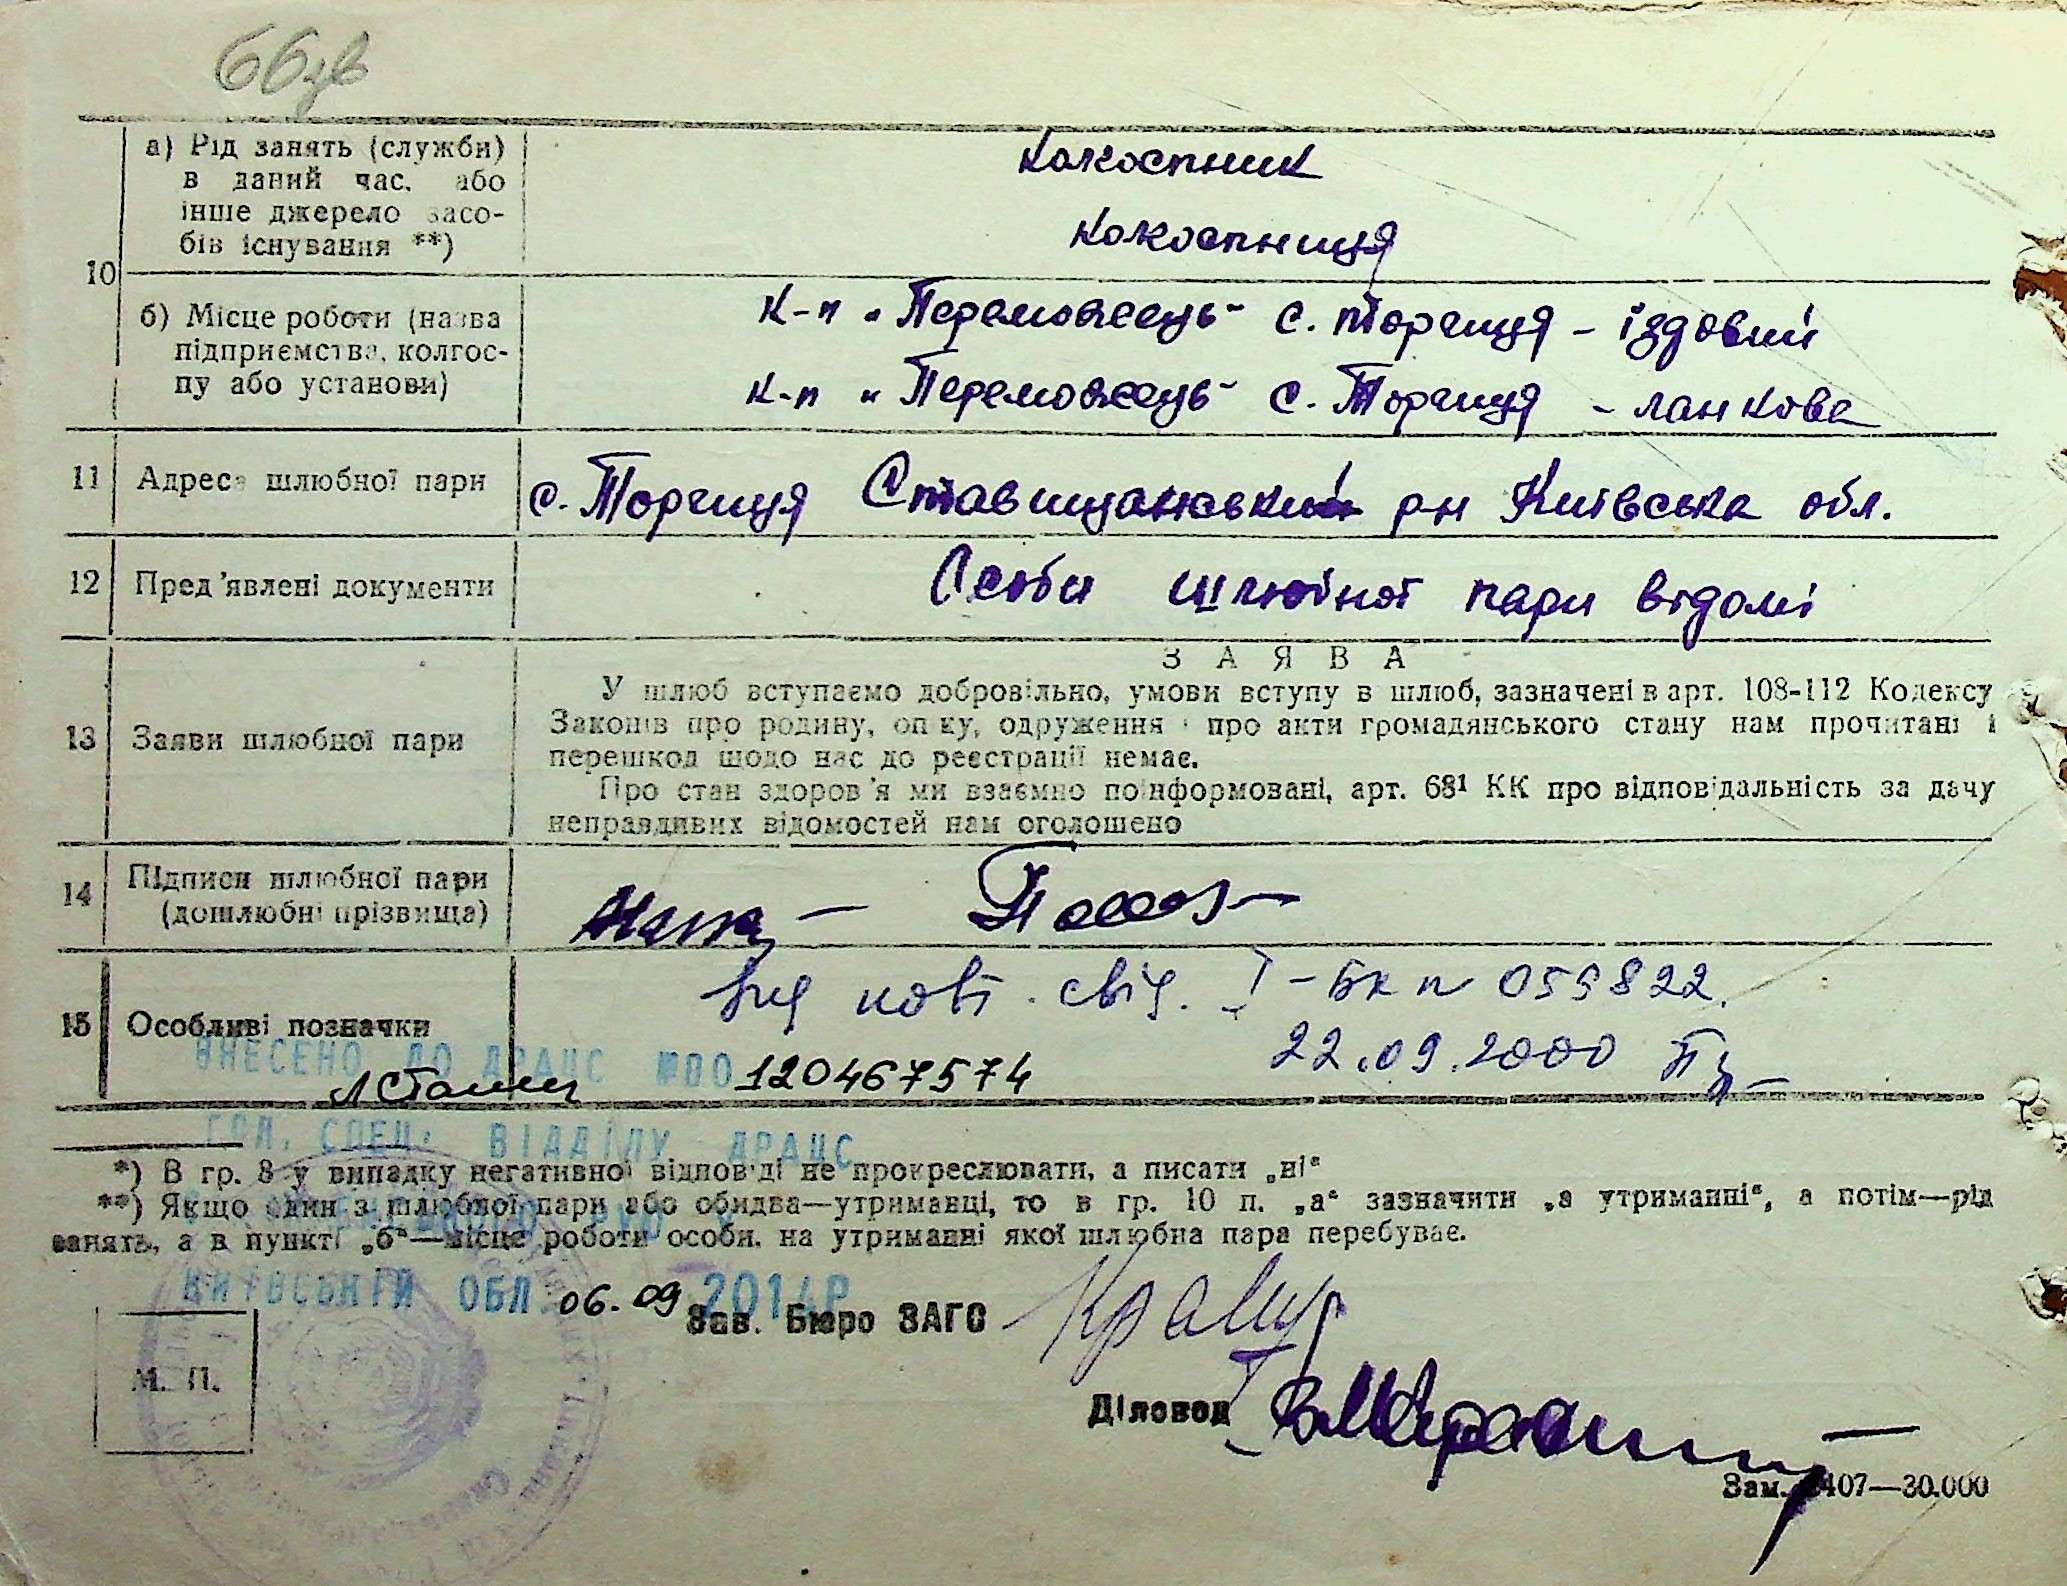 66 зв
10
а) Рід занять (служби)
в даний час, або
інше джерело засо-
бів існування **)
Колгоспник
Колгоспниця
б) Місце роботи (назва
підприємства, колгос-
пу або установи)
К-п „Переможець" с. Торчиця – їздовий
К-п „Переможець" с. Торчиця – ланкова
11 Адреса шлюбної пари
с. Торчиця Ставищанський р-н Київська обл.
12 Пред'явлені документи
Особи шлюбної пари відомі
13 Заяви шлюбної пари
ЗАЯВА
У шлюб вступаємо добровільно, умови вступу в шлюб, зазначені в арт. 108-112 Кодексу
Законів про родину, опіку, одруження і про акти громадянського стану нам прочитані і
перешкод щодо нас до реєстрації немає.
Про стан здоров'я ми взаємно поінформовані, арт. 68¹ КК про відповідальність за дачу
неправдивих відомостей нам оголошено
14 Підписи шлюбної пари
(дошлюбні прізвища)
15 Особливі позначки
вид повт. свід. І-БК № 059822
22.09.2000
ВНЕСЕНО ДО ДРАЦС №00 120467574
ГОЛ. СПЕЦ. ВІДДІЛУ ДРАЦС
*) В гр. 8 у випадку негативної відповіді не прокреслювати, а писати „ні"
**) Якщо один з шлюбної пари або обидва—утриманці, то в гр. 10 п. „а" зазначити „а утриманні", а потім—рід
занять, а в пункті „б"—місце роботи особи, на утриманні якої шлюбна пара перебуває.
КИЇВСЬКІЙ ОБЛ. 06.09 2014Р
Зав. Бюро ЗАГС
М. П.
Діловод
Зам. 407—30.000